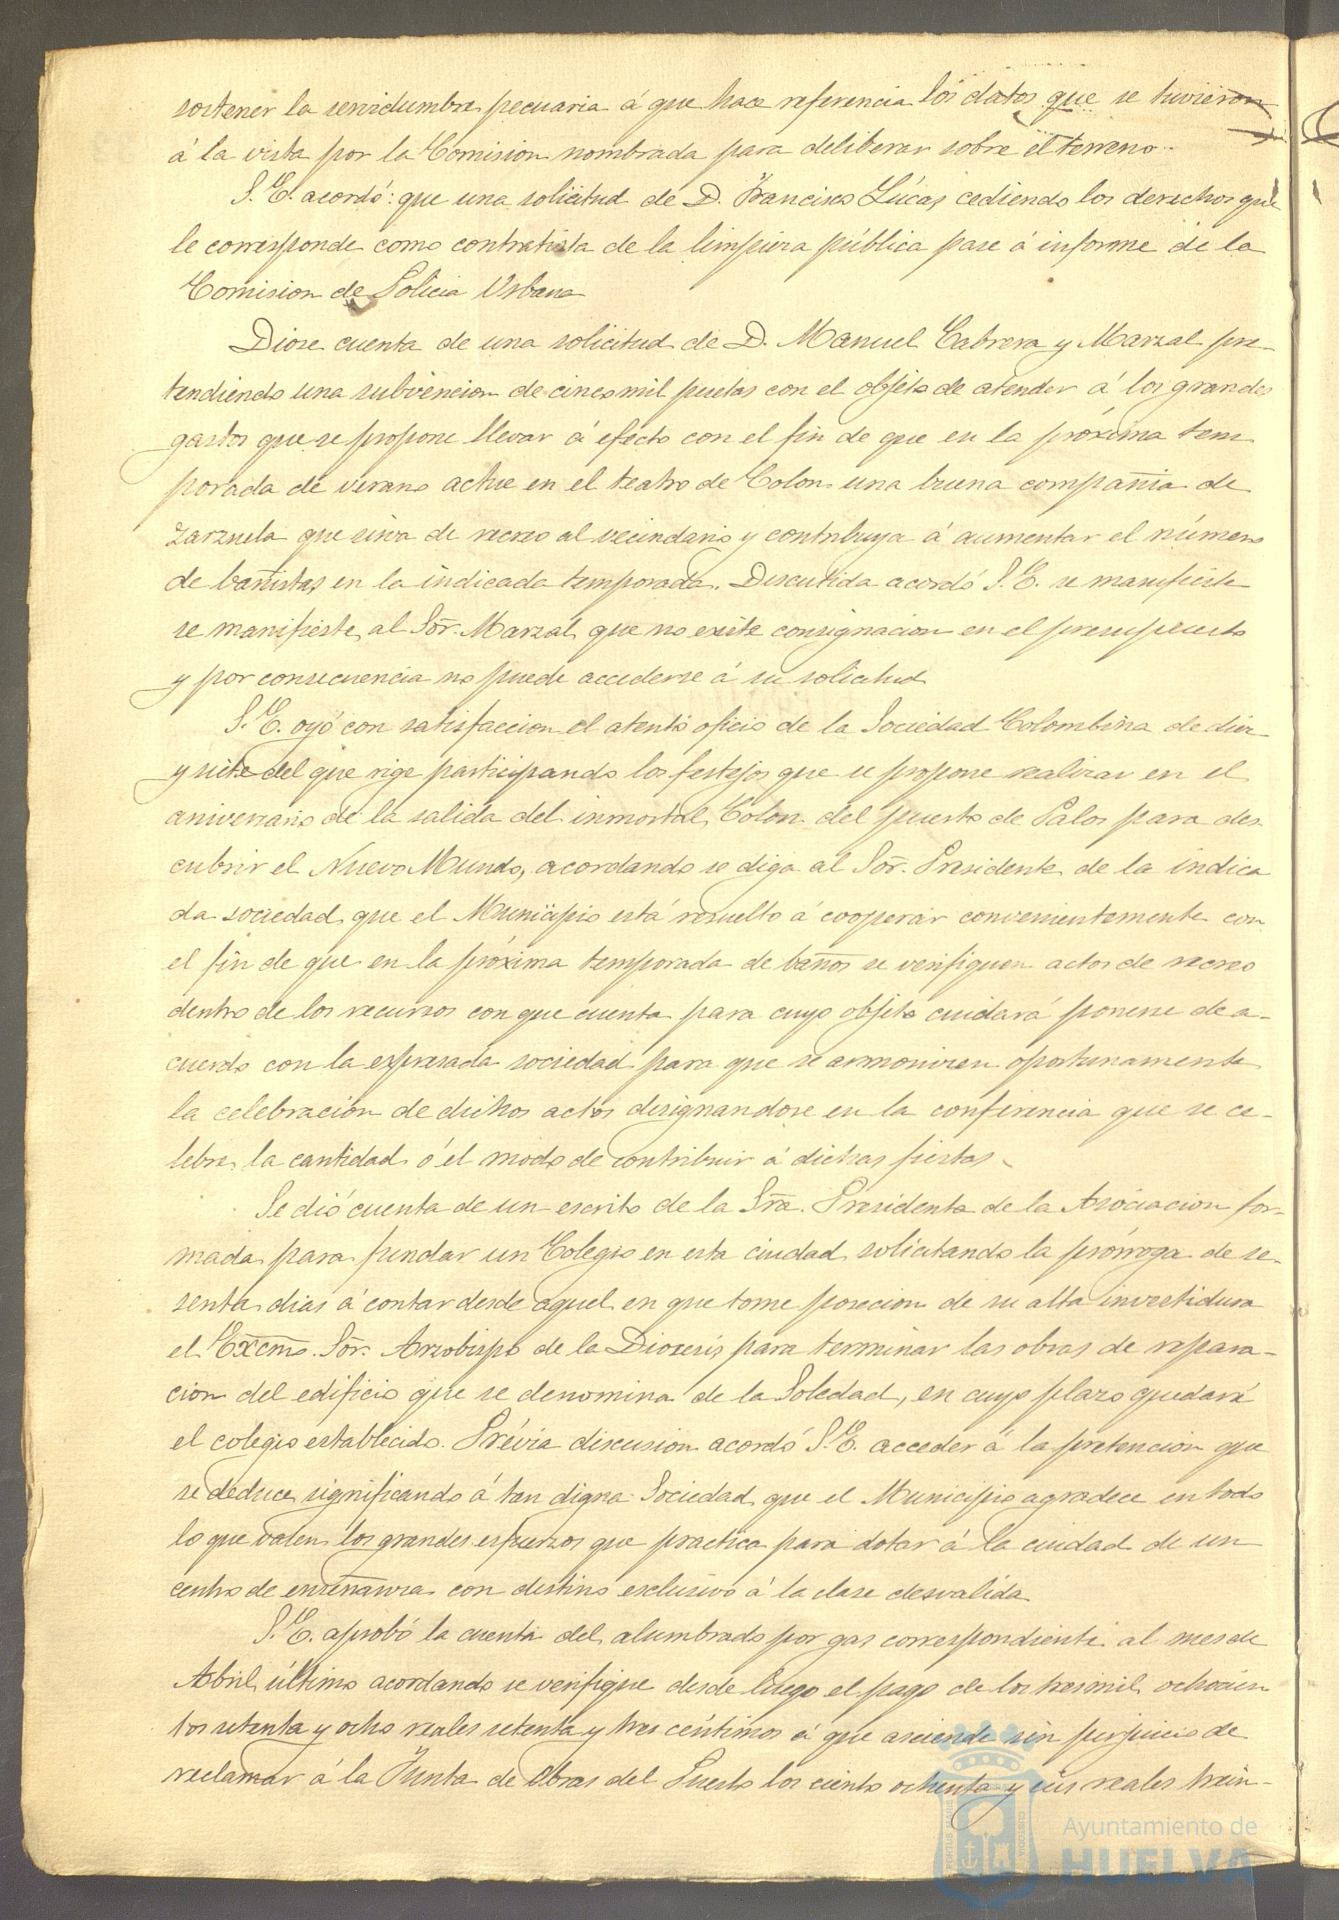 sostener la servidumbre pecuaria á que hace referencia los datos que se tuvieron
á la vista por la Comision nombrada para deliberar sobre el terreno.
S.E. acordó: que una solicitud de D. Francisco Lúcas cediendo los derechos que
le corresponde como contratista de la limpieza pública pase á informe de la
Comision de Policia Urbana
Diose cuenta de una solicitud de D. Manuel Cabrera y Marzal pre-
tendiendo una subvencion de cinco mil pesetas con el objeto de atender á los grandes
gastos que se propone llevar á efecto con el fin de que en la próxima tem
porada de verano actue en el teatro de Colon una buena compañia de
zarzuela que sirva de recreo al vecindario y contribuya á aumentar el número
de bañistas en la indicada temporada. Discutida acordó S.E. se manifieste
se manifieste al Sor. Marzal que no existe consignacion en el presupuesto
y por consecuencia no puede accederse á su solicitud
S.E. oyó con satisfaccion el atento oficio de la Sociedad Colombina de diez
y siete del que rige participando los festejos que se propone realizar en el
aniversario de la salida del inmortal Colon del puerto de Palos para des
cubrir el Nuevo Mundo, acordando se diga al Sor. Presidente de la indica
da sociedad que el Municipio está resuelto á cooperar convenientemente con
el fin de que en la próxima temporada de baños se verifiquen actos de recreo
dentro de los recursos con que cuenta para cuyo objeto cuidará ponerse de a-
cuerdo con la expresada sociedad para que se armonicen oportunamente
la celebración de dichos actos designandose en la conferencia que se ce-
lebre la cantidad ó el modo de contribuir á dichas fiestas
Se dió cuenta de un escrito de la Sra. Presidenta de la Asociacion for-
mada para fundar un Colegio en esta ciudad solicitando la prórroga de se-
senta dias á contar desde aquel en que tome posecion de su alta investidura
el Excmo. Sor. Arzobispo de la Diocesis para terminar las obras de repara-
cion del edificio que se denomina de la Soledad, en cuyo plazo quedará
el colegio establecido. Prévia discusion acordó S.E. acceder á la pretencion que
se deduce significando á tan digna Sociedad que el Municipio agradece en todo
lo que valen los grandes esfuerzos que practica para dotar á la ciudad de un
centro de enseñanza con destino esclusivo á la clase desvalida
S.E. aprobó la cuenta del alumbrado por gas correspondiente al mes de
Abril último acordando se verifique desde luego el pago de los tres mil ochocien
tos setenta y ocho reales setenta y tres céntimos á que asciende sin perjuicio de
reclamar á la Junta de Obras del Puerto los ciento ochenta y seis reales trein-
Ayuntamiento de
HUELVA